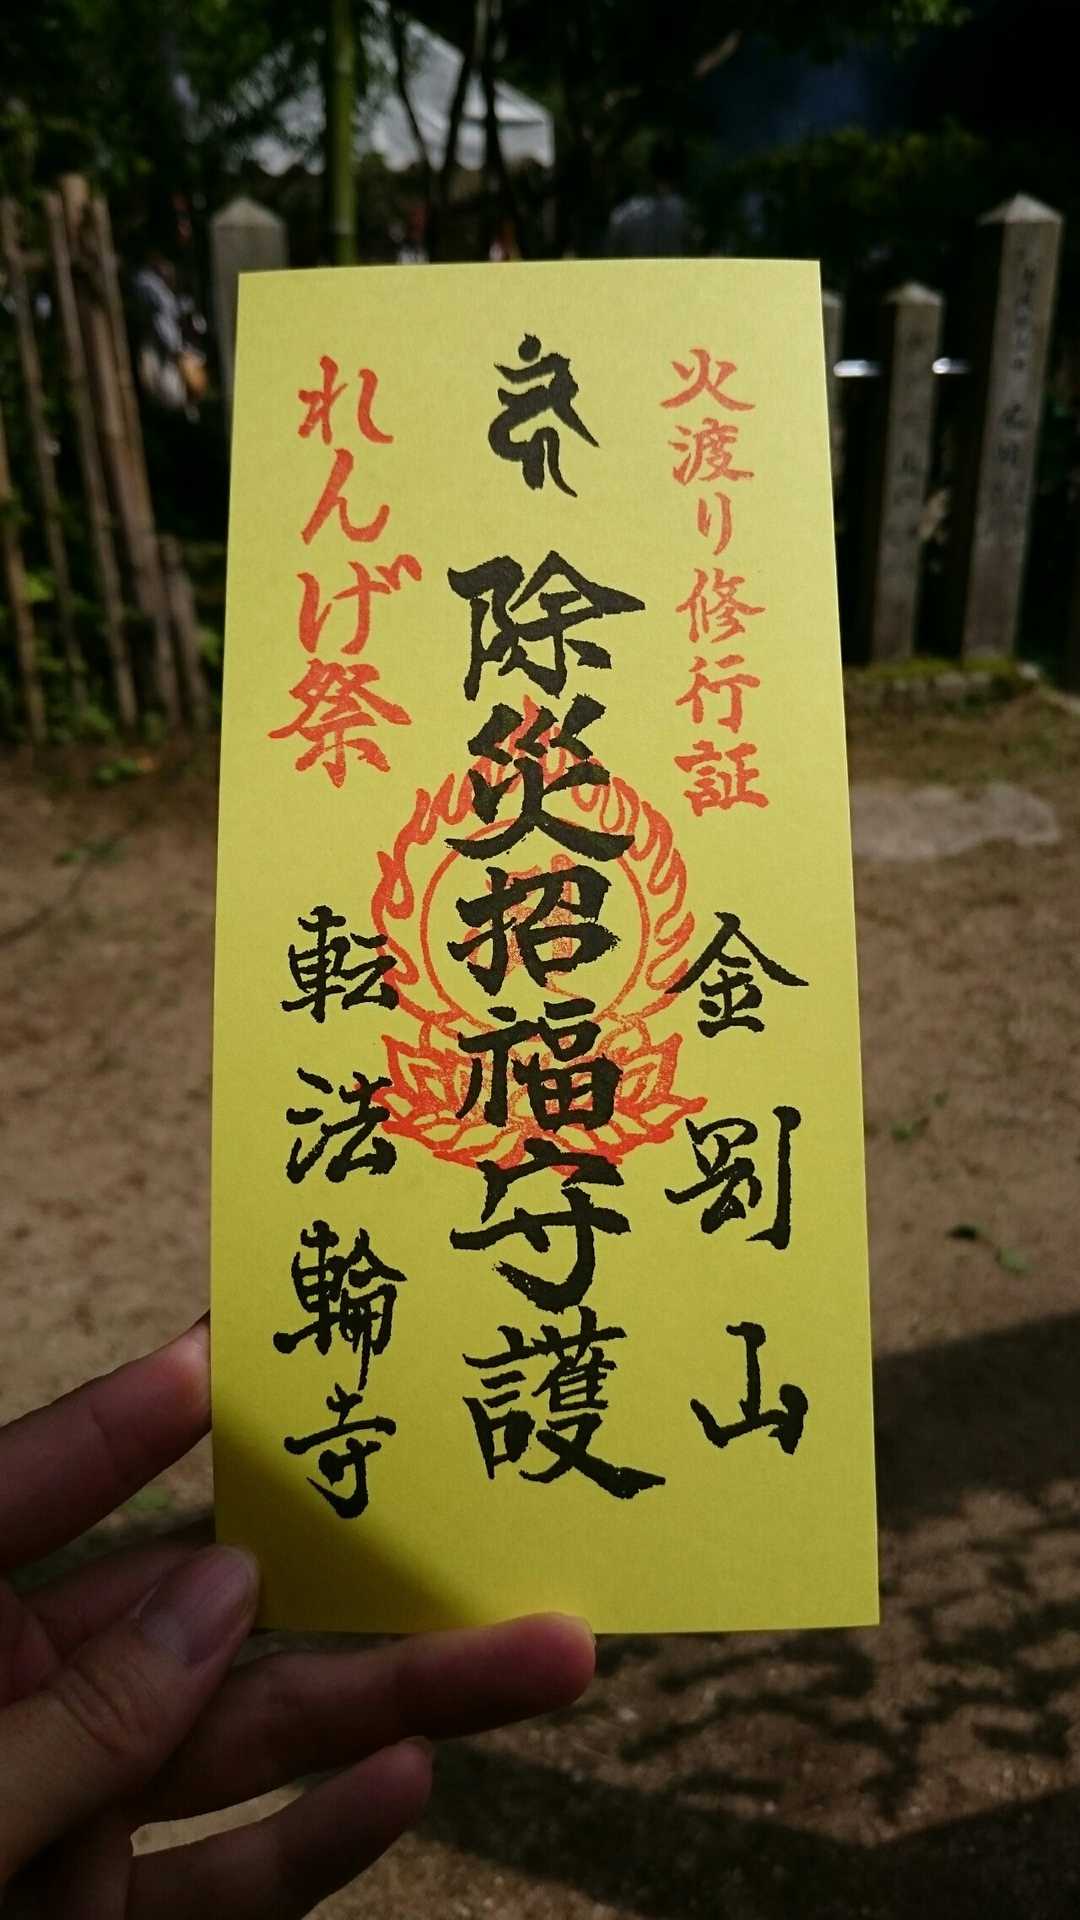 火渡り修行証
金剛山
除災招福守護
れんげ祭
転法輪寺